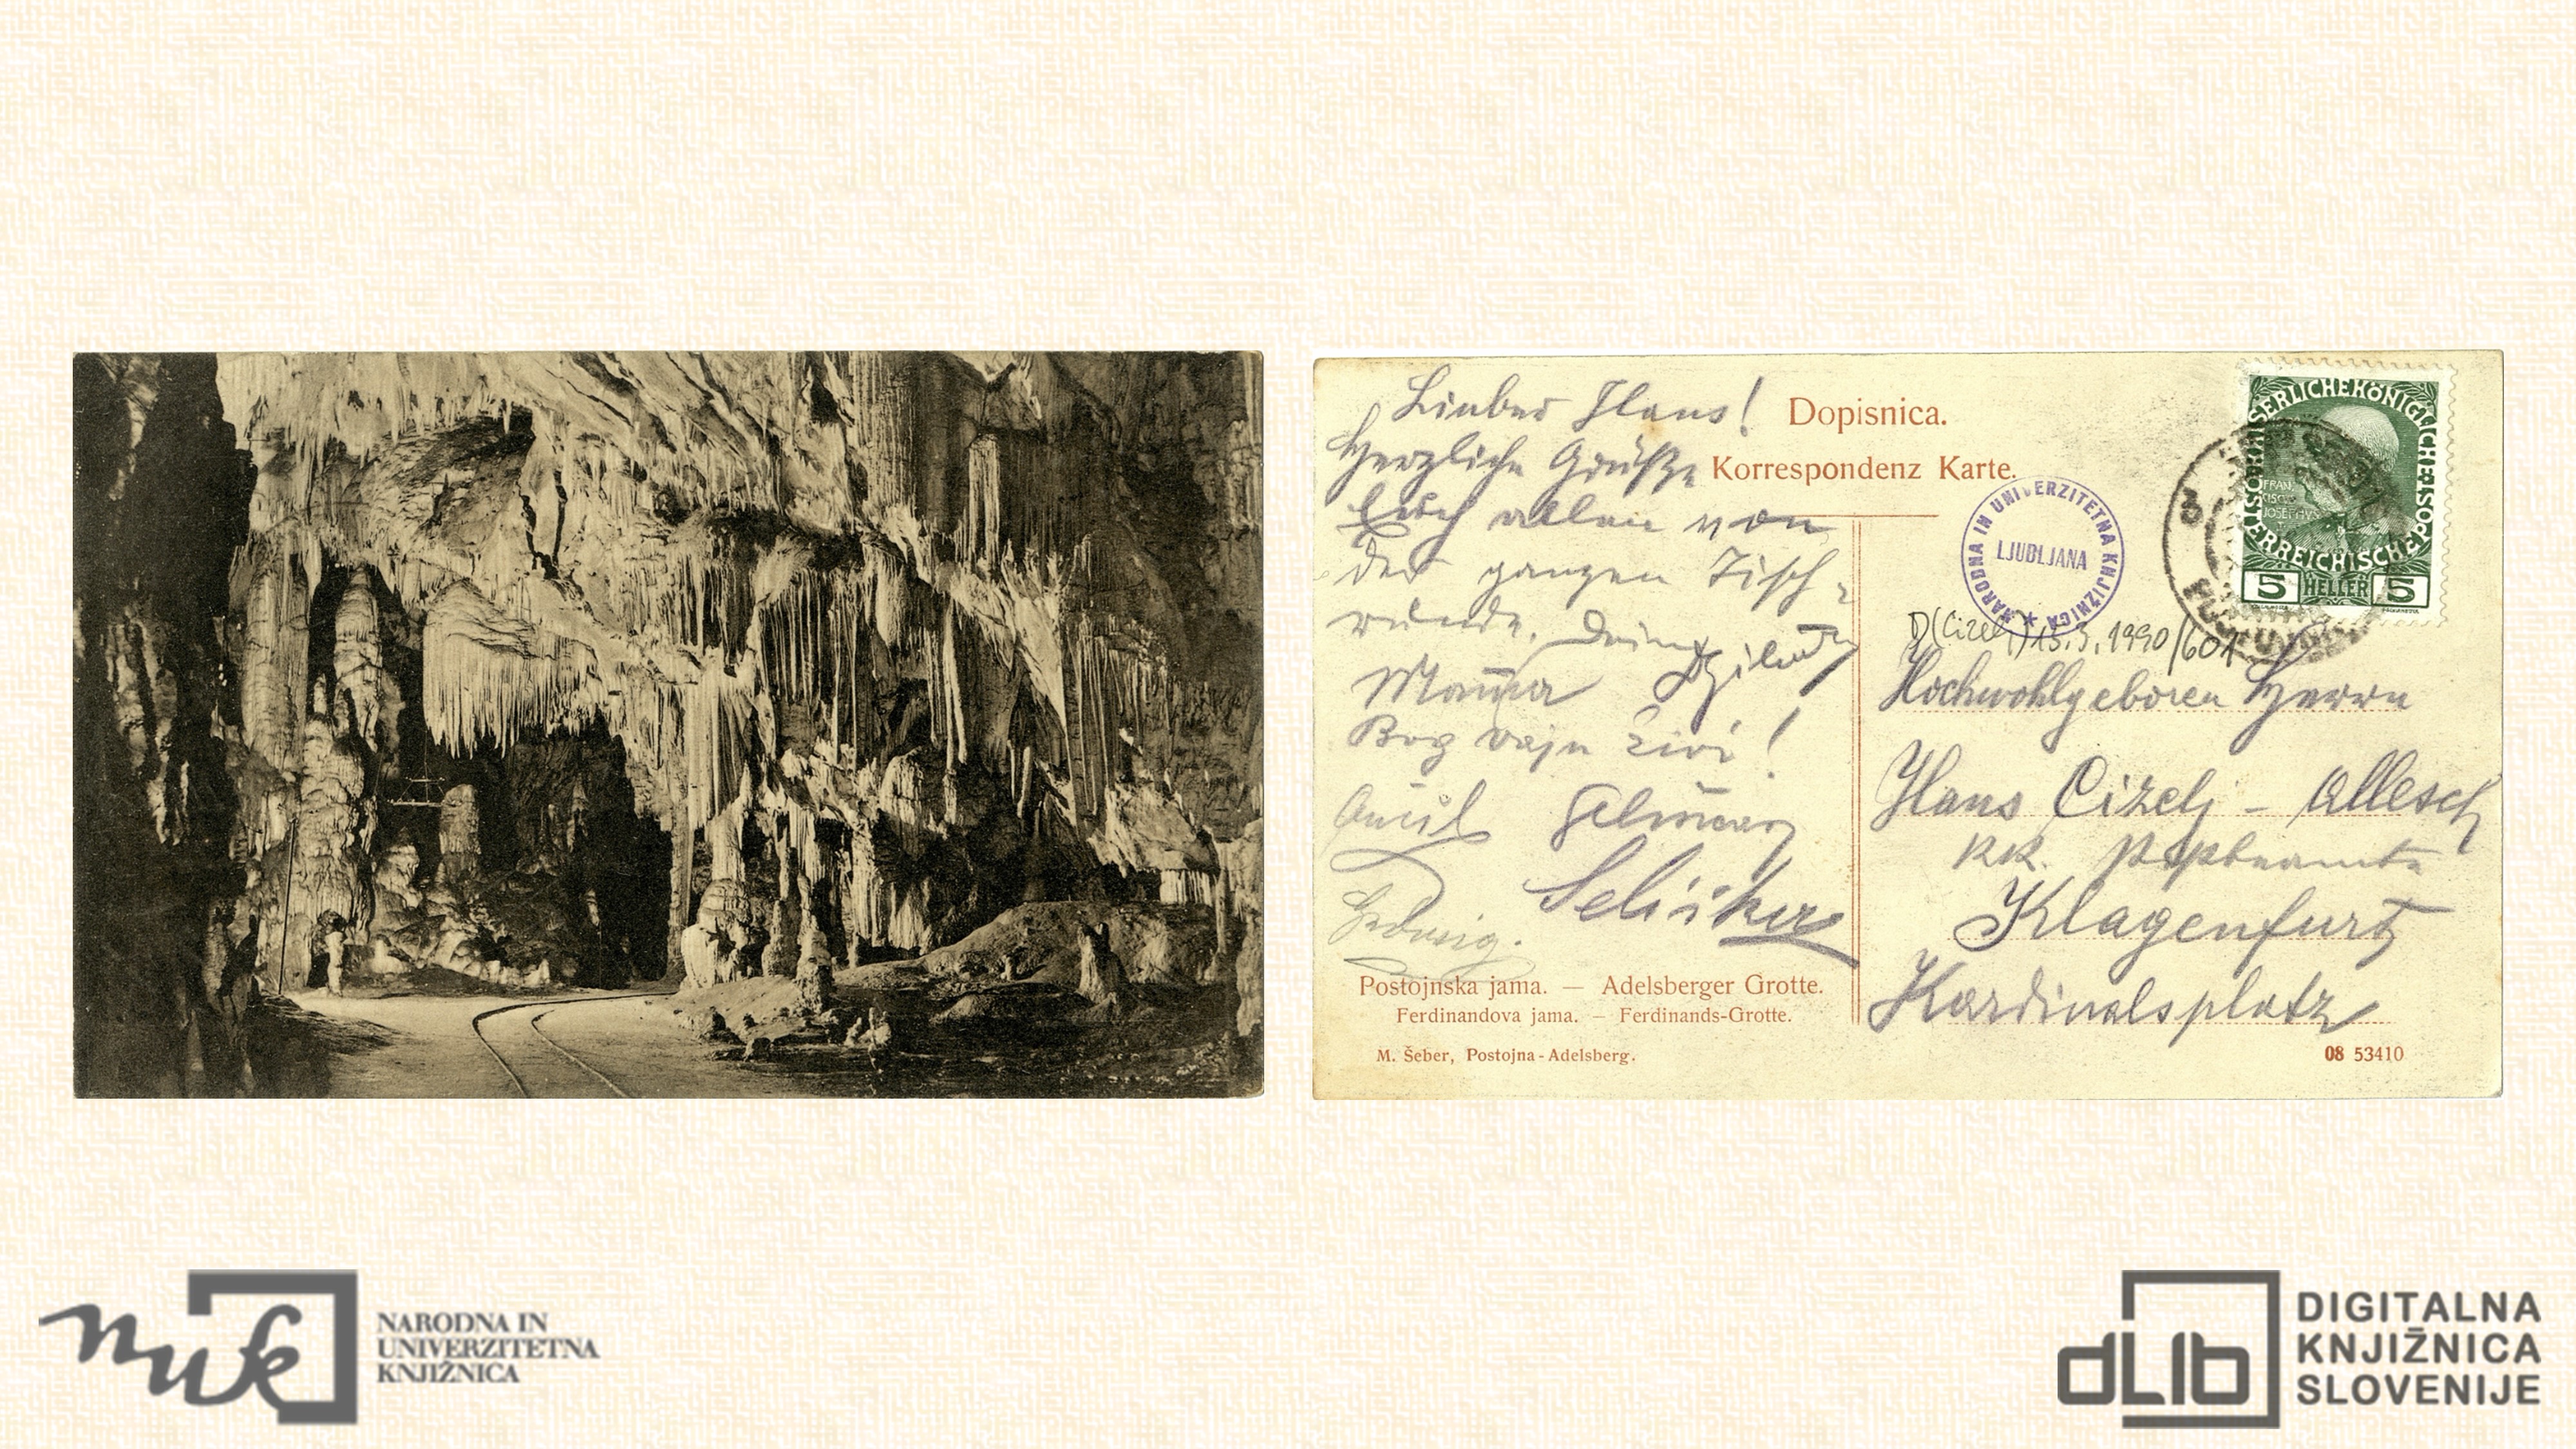 Lieber Hans!
Herzliche Grüße
Euch allen von
der ganzen Tisch-
runde. Deine
Mama
Bog vaju živi!
Seliškar
Hedwig.
Dopisnica.
Korrespondenz Karte.
NARODNA IN UNIVERZITETNA KNJIŽNICA
LJUBLJANA
KAISERLICHE KÖNIGLICHE ÖSTERREICHISCHE POST
FRAN
CISCVS
JOSEPHVS
5 HELLER 5
3
D(Cizelj) 15.3.1990/601
Hochwohlgeboren Herrn
Hans Cizelj - Allesch
k.k. Postbeamte
Klagenfurt
Kardinalsplatz
Postojnska jama. — Adelsberger Grotte.
Ferdinandova jama. — Ferdinands-Grotte.
M. Šeber, Postojna-Adelsberg.
08 53410
nuk
NARODNA IN
UNIVERZITETNA
KNJIŽNICA
dLib
DIGITALNA
KNJIŽNICA
SLOVENIJE